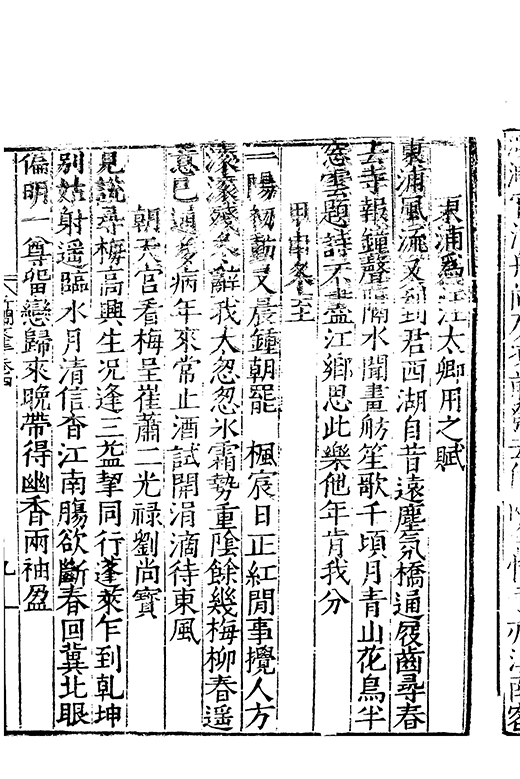 東浦爲汪太卿用之賦
東浦風流又到君西湖自昔遠塵氛橋通屐齒尋春
去寺報鐘聲隔水聞畫舫笙歌千頃月青山花鳥半
窓雲題詩不盡江鄉思此樂他年肯我分
甲申冬至
一陽初動又晨鍾朝罷 楓宸日正紅閒事攪人方
滚滚殘冬辭我太怱怱氷霜勢重陰餘幾梅柳春遥
意已通多病年來常止酒試開涓滴待東風
朝天宫看梅呈崔蕭二光禄劉尚寳
見說尋梅高興生况逢三益挈同行蓬萊乍到乾坤
别姑射遥臨水月清信杳江南腸欲斷春回冀北眼
偏明一尊留戀歸來晚帶得幽香兩袖盈
九